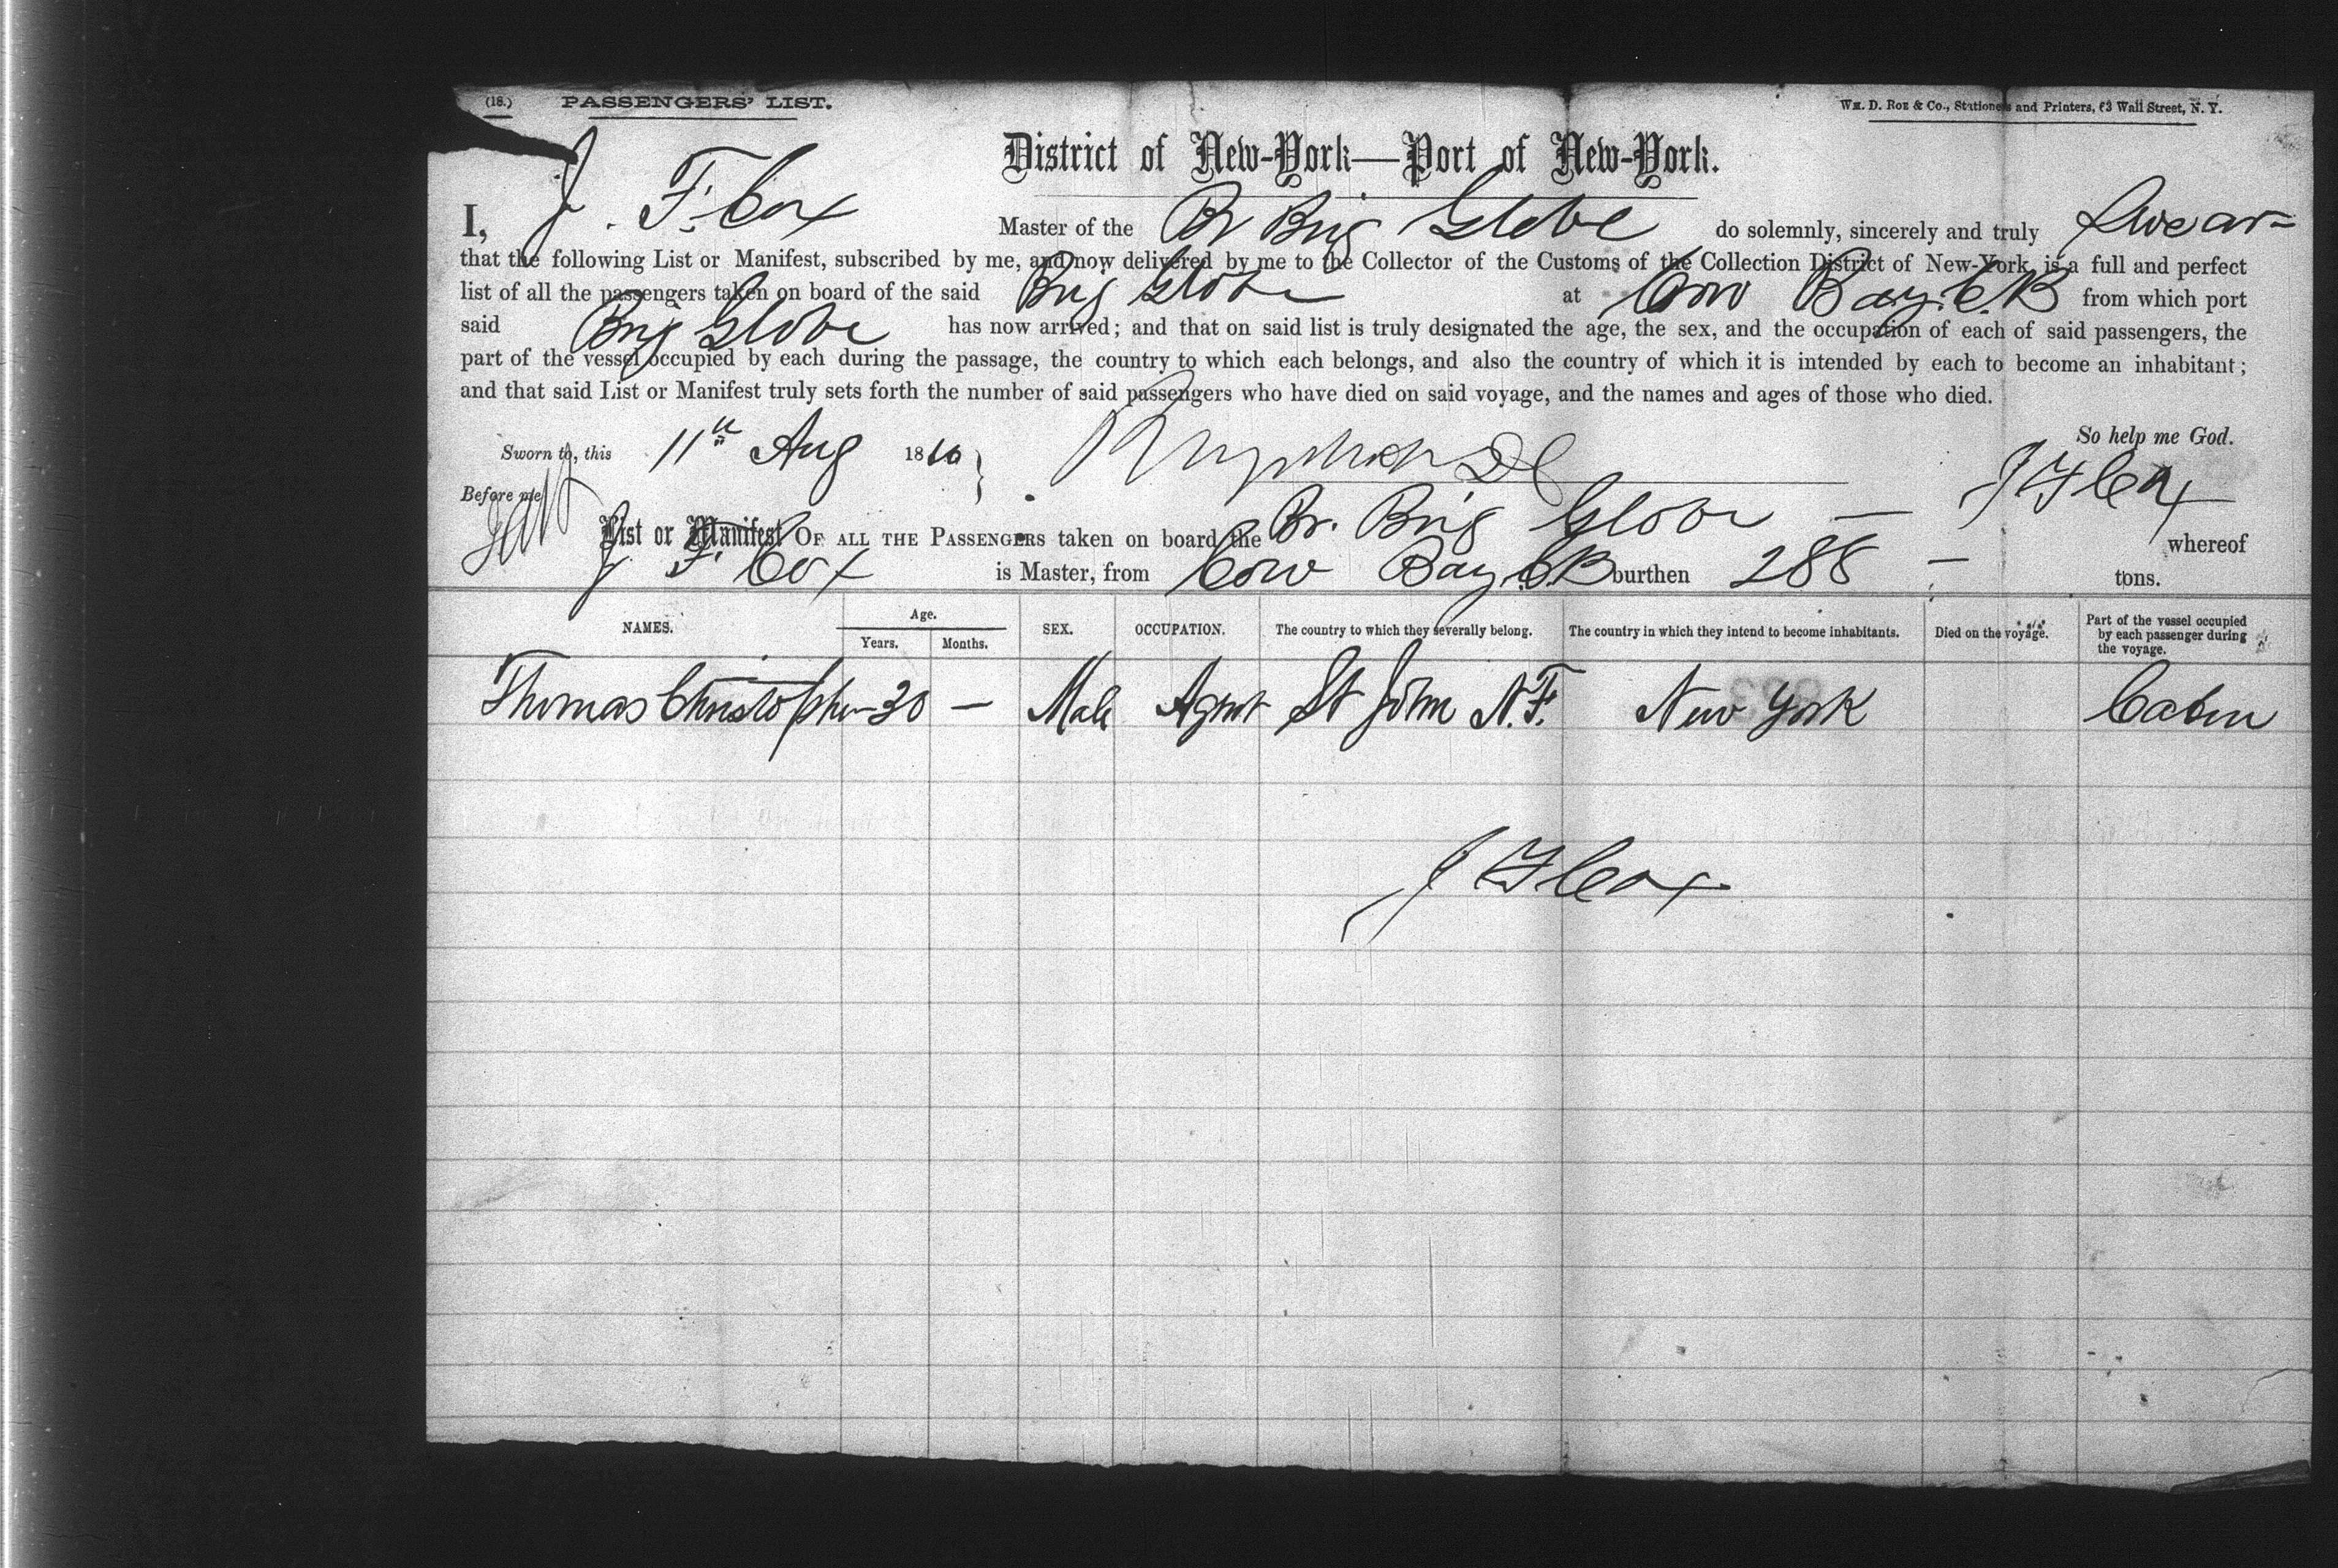 (18.) PASSENGERS' LIST. Wm. D. Roe & Co., Stationers and Printers, 63 Wall Street, N. Y.
District of New-York—Port of New-York.
I, J. F. Cox Master of the Br Brig Globe do solemnly, sincerely and truly Swear
that the following List or Manifest, subscribed by me, and now delivered by me to the Collector of the Customs of the Collection District of New-York, is a full and perfect
list of all the passengers taken on board of the said Brig Globe at Cow Bay. C.B from which port
said Brig Globe has now arrived; and that on said list is truly designated the age, the sex, and the occupation of each of said passengers, the
part of the vessel occupied by each during the passage, the country to which each belongs, and also the country of which it is intended by each to become an inhabitant;
and that said List or Manifest truly sets forth the number of said passengers who have died on said voyage, and the names and ages of those who died.
So help me God.
Sworn to, this 11th Aug 18
Before me J F Cox
List or Manifest OF ALL THE PASSENGERS taken on board the Br. Brig Globe — whereof
J. F. Cox is Master, from Cow Bay. C.B burthen 288 — tons.
NAMES. Age. Years. Months. SEX. OCCUPATION. The country to which they severally belong. The country in which they intend to become inhabitants. Died on the voyage. Part of the vessel occupied by each passenger during the voyage.
Thomas Christopher 30 — Male Agent St John N.F. New York Cabin
J F Cox